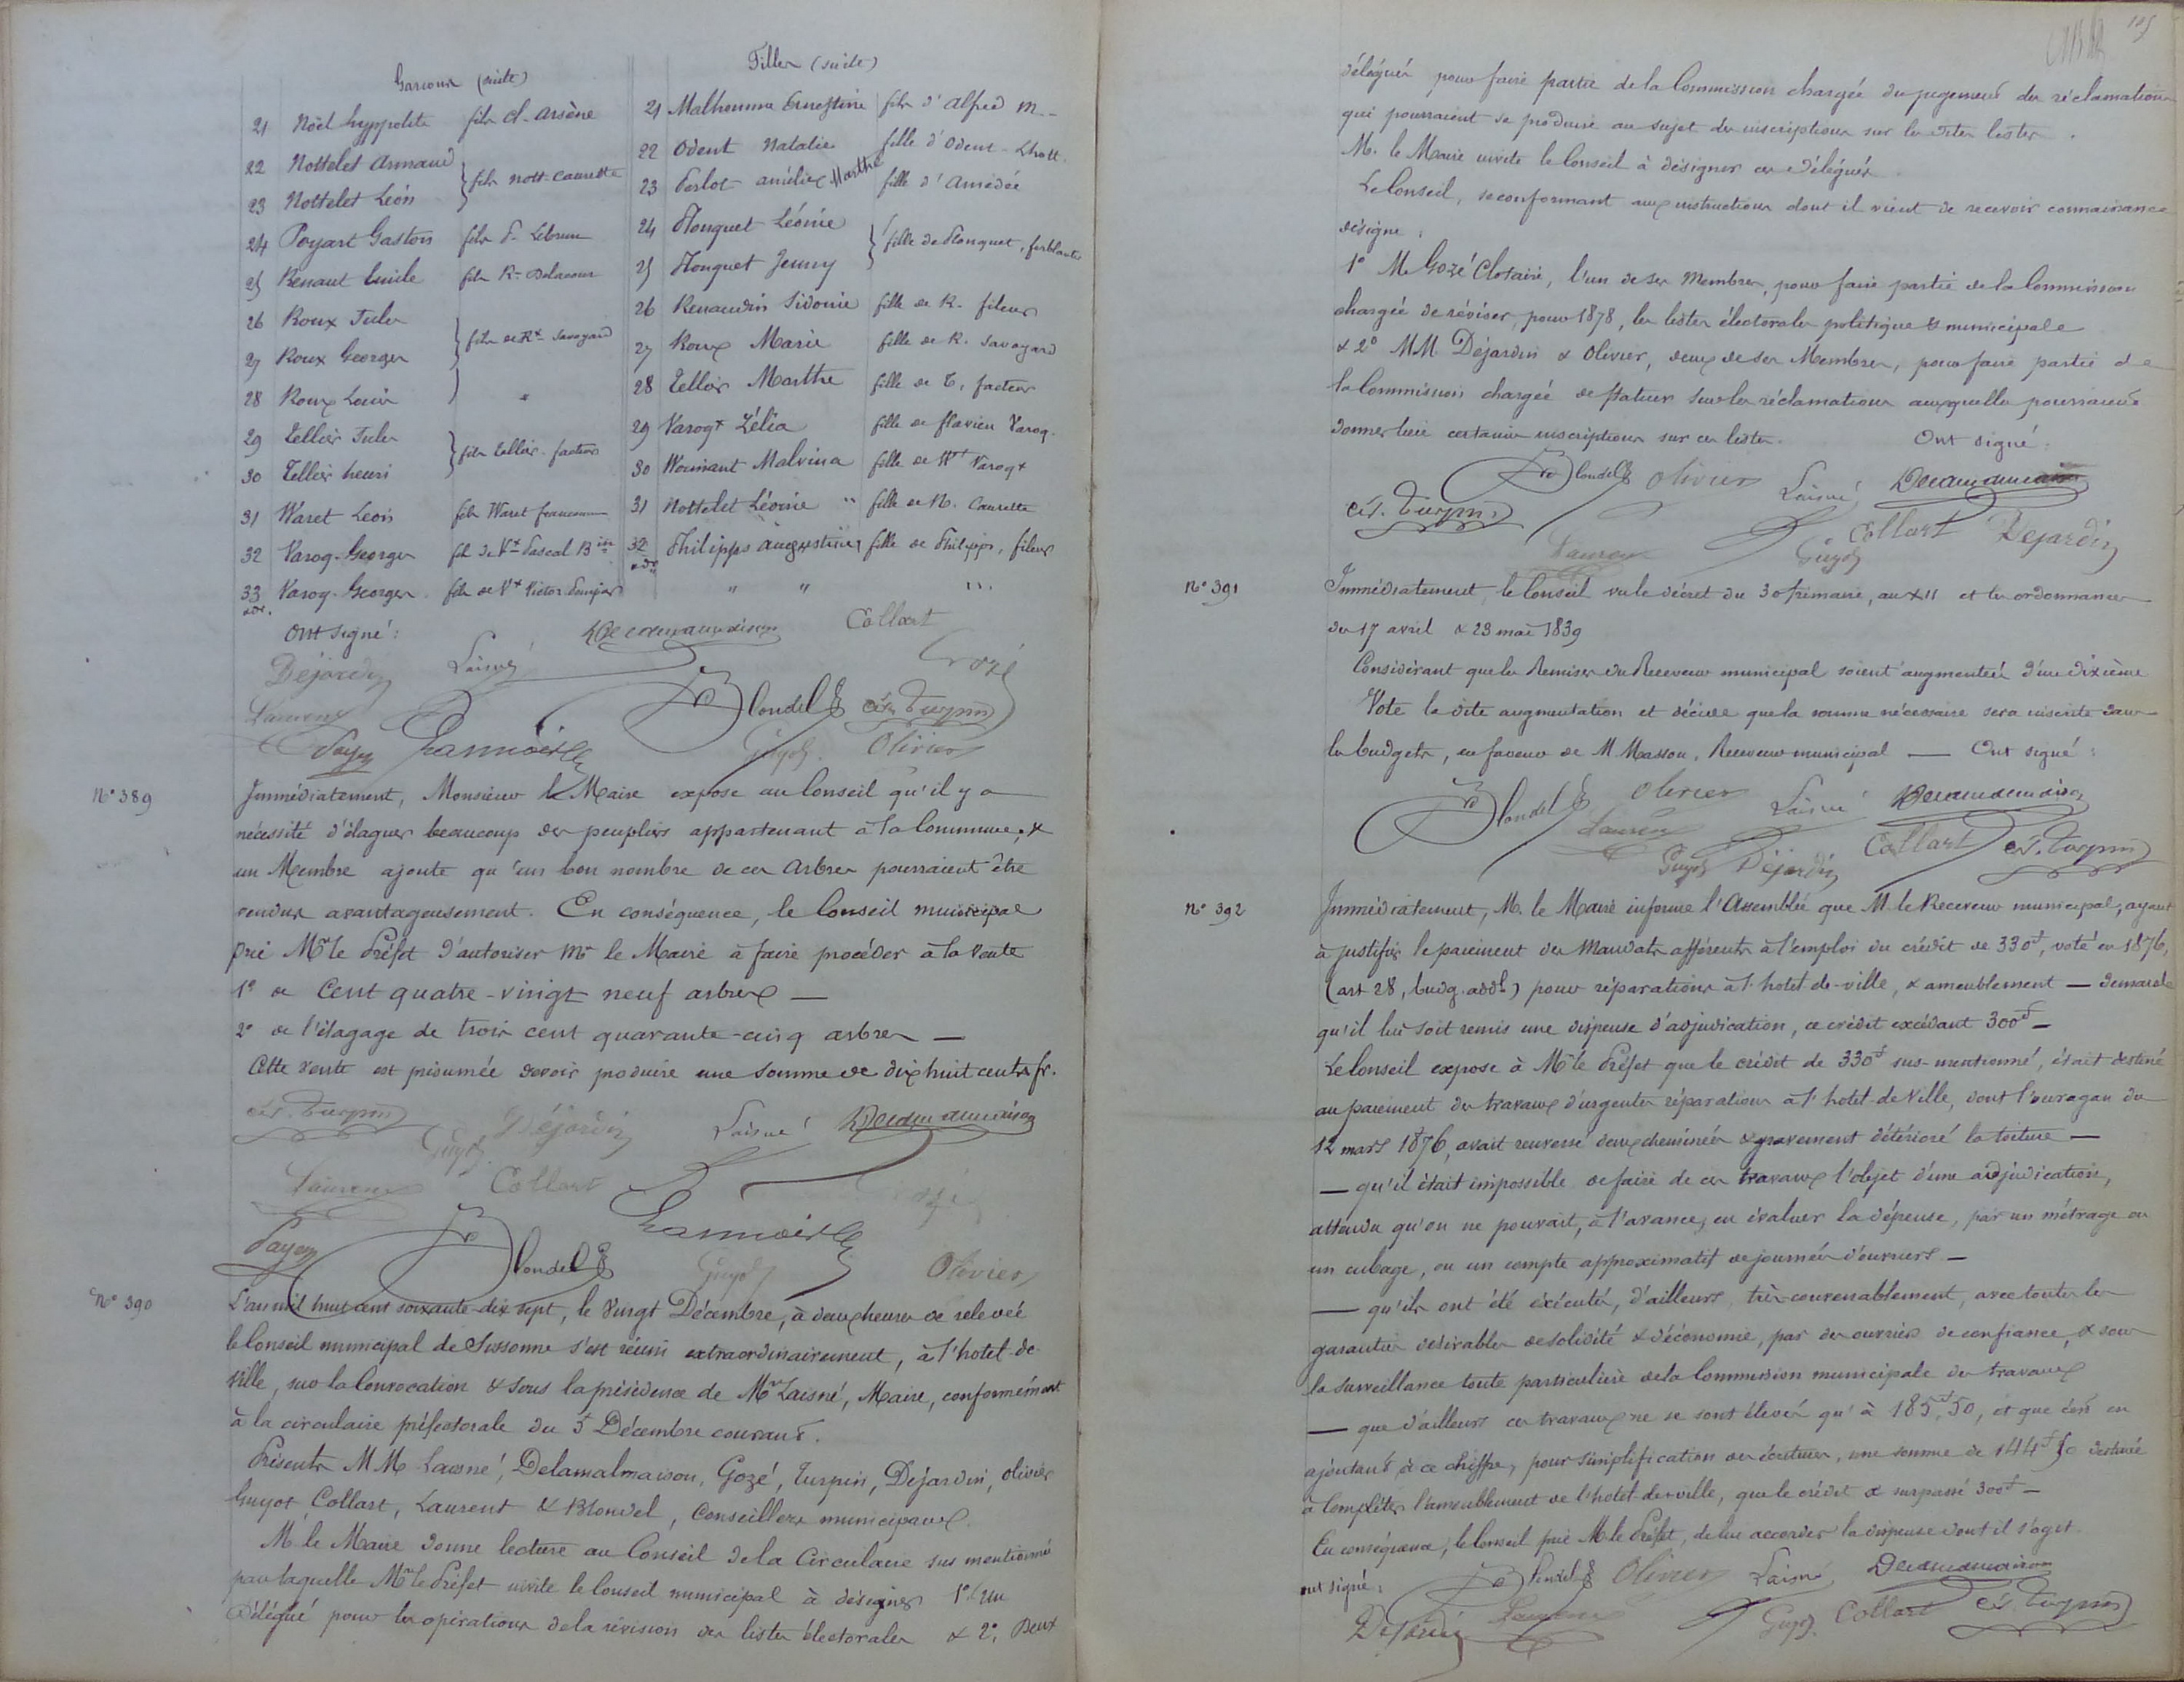 Garçons (suite)
21 Noël hyppolite fils d'Arsène
22 Nottelet Armand
23 Nottelet Léon
fils Nott-Caurette
24 Poyart Gaston fils P. Lebrun
25 Renaut Emile fils R- Delacour
26 Roux Jules
27 Roux Georges
fils de Rx Savoyard
28 Roux Louis "
29 Tellier Jules
30 Tellier henri
fils Tellier-facteur
31 Waret Léon fils Waret
32 Varoq. Georges fils de Vx Pascal Bin
33 Varoq. Georges fils de Vx Victor
Filles (suite)
21 Malhomme Ernestine fille d'Alfred M--
22 Odent Natalie fille d'Odent-Lhott.
23 Perlot amélie Marthe fille d'Amédée
24 Plonquet Léonie
25 Plonquet Jenny
fille de Plonquet, ferblantier
26 Renaudin Sidonie fille de R. fileur
27 Roux Marie fille de R. Savoyard
28 Tellier Marthe fille de T, facteur
29 Varoqx Zélia fille de flavien Varoq.
30 Wouinant Malvina fille de Wt Varoqx
31 Nottelet Léonie " fille de N. Caurette
32 Philipps augustine fille de Philipps, fileur
" " "
Ont signé : Delamalmaison Collart
Déjardin Laisné Gozé
Laurent Blondel Cés. Turpin
Payen Lannois Guyot Olivier
N° 389
Immédiatement, Monsieur le Maire expose au Conseil qu'il y a
nécessité d'élaguer beaucoup des peupliers appartenant à la Commune, &
un Membre ajoute qu'un bon nombre de ces Arbres pourraient être
vendus avantageusement. En conséquence, le Conseil municipal
prie Mr le Préfet d'autoriser Mr le Maire à faire procéder à la Vente
1° de Cent quatre-vingt neuf arbres —
2° de l'élagage de trois cent quarante-cinq arbres —
Cette vente est présumée devoir produire une somme de dix huit cents fr.
Cés. Turpin Guyot Déjardin Laisné Delamalmaison
Laurent Collart Gozé
Payen Blondel Lannois Guyot Olivier
N° 390
L'an mil huit cent soixante-dix sept, le Vingt Décembre, à deux heures de relevée
le Conseil municipal de Sissonne s'est réuni extraordinairement, à l'hotel-de-
ville, sur la Convocation & sous la présidence de Mr Laisné, Maire, conformément
à la circulaire préfectorale du 5 Décembre courant.
Présents MM. Laisné, Delamalmaison, Gozé, Turpin, Déjardin, Olivier
Guyot Collart, Laurent & Blondel, Conseillers municipaux.
M. le Maire donne lecture au Conseil de la Circulaire sus mentionnée
par laquelle Mr le Préfet invite le Conseil municipal à désigner 1° Un
Délégué pour les opérations de la révision des listes électorales & 2° Deux
105
délégués pour faire partie de la Commission chargée du jugement des réclamations
qui pourraient se produire au sujet des inscriptions sur les dites listes.
M. le Maire invite le Conseil à désigner ces Délégués
Le Conseil, se conformant aux instructions dont il vient de recevoir connaissance
désigne :
1° M. Gozé Clotaire, l'un de ses Membres, pour faire partie de la Commission
chargée de réviser, pour 1878, les listes électorales politique & municipale
& 2° MM. Déjardin & Olivier, deux de ses Membres, pour faire partie de
la Commission chargée de statuer sur les réclamations auxquelles pourraient
donner lieu certaines inscriptions sur ces listes. Ont signé :
Cés. Turpin Blondel Olivier Laisné Delamalmaison
Laurent Guyot Collart Déjardin
N° 391
Immédiatement, le Conseil vu le décret du 30 frimaire, an XII et les ordonnances
des 17 avril & 23 mai 1839
Considérant que les Remises du Receveur municipal soient augmentées d'un dixième
Vote la dite augmentation et décide que la somme nécessaire sera inscrite dans
les budgets, en faveur de M. Masson, Receveur municipal — Ont signé :
Blondel Olivier Laisné Delamalmaison
Laurent Guyot Déjardin Collart Cés. Turpin
N° 392
Immédiatement, M. le Maire informe l'Assemblée que M. le Receveur municipal, ayant
à justifier le paiement des Mandats afférents à l'emploi du crédit de 330f, voté en 1876,
(art 28, budg. addl) pour réparations à l'hotel-de-ville, & ameublement — demande
qu'il lui soit remis une dispense d'adjudication, ce crédit excédant 300f —
Le Conseil expose à Mr le Préfet que le crédit de 330f sus-mentionné, était destiné
au paiement des travaux d'urgentes réparations à l'hotel-de-Ville, dont l'ouragan du
12 mars 1876, avait renversé deux cheminées & gravement détérioré la toiture —
— qu'il était impossible de faire de ces travaux l'objet d'une adjudication,
attendu qu'on ne pouvait, à l'avance, en évaluer la dépense, par un métrage ou
un cubage, ou un compte approximatif de journées d'ouvriers —
— qu'ils ont été éxécutés, d'ailleurs, très-convenablement, avec toutes les
garanties désirables de solidité & d'économie, par des ouvriers de confiance, & sous
la surveillance toute particulière de la Commission municipale des travaux
— que d'ailleurs ces travaux ne se sont élevés qu'à 185f,50, et que c'est en
ajoutant à ce chiffre, pour simplification des écritures, une somme de 144f 50 destinée
à Compléter l'ameublement de l'hotel-de-ville, que le crédit a surpassé 300f —
En conséquence, le Conseil prie M. le Préfet, de lui accorder la dispense dont il s'agit.
ont signé : Blondel Olivier Laisné Delamalmaison
Déjardin Laurent Guyot Collart Cés. Turpin